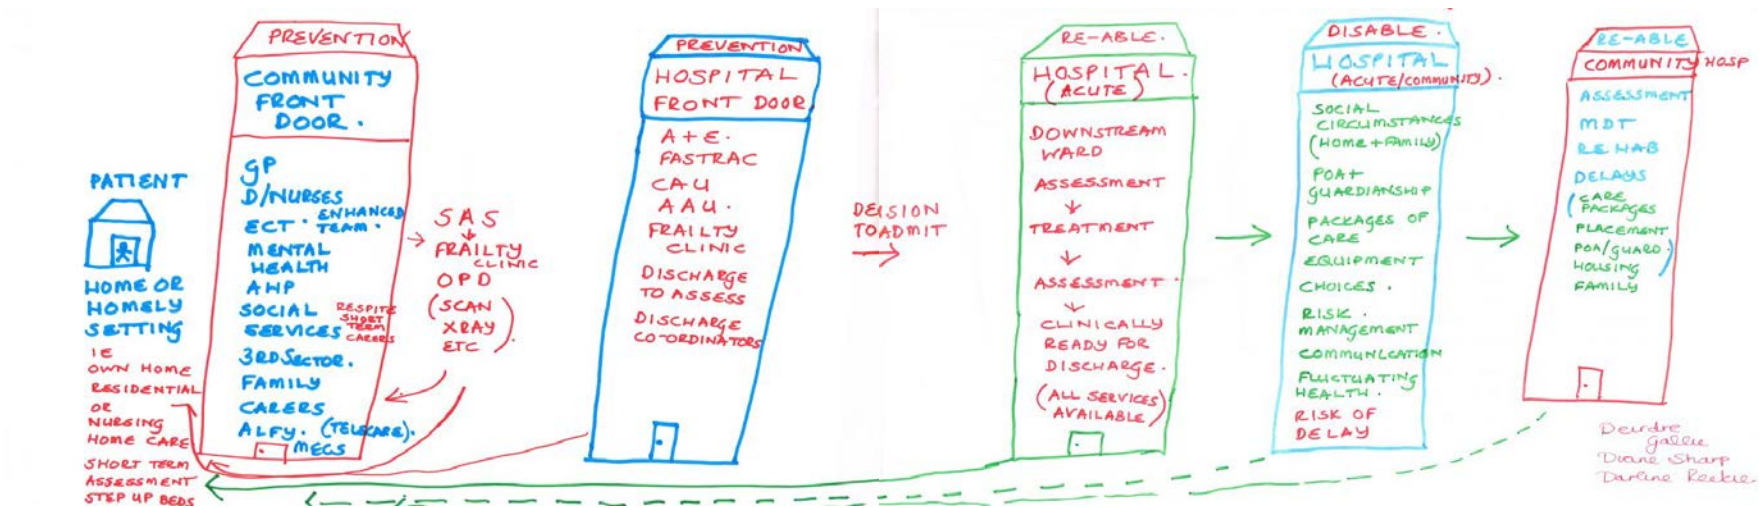 PATIENT
HOME OR
HOMELY
SETTING
IE
OWN HOME
RESIDENTIAL
OR
NURSING
HOME CARE
SHORT TERM
ASSESSMENT
STEP UP BEDS
PREVENTION
COMMUNITY
FRONT
DOOR.
GP
D/NURSES
ECT. ENHANCED
TEAM.
MENTAL
HEALTH
AHP
SOCIAL
SERVICES
RESPITE
SHORT
TERM
CARERS
3RD SECTOR.
FAMILY
CARERS
ALFY. (TELECARE).
MECS
SAS
FRAILTY
CLINIC
OPD
(SCAN
XRAY
ETC)
PREVENTION
HOSPITAL
FRONT DOOR
A+E.
FASTRAC
CAU
AAU.
FRAILTY
CLINIC
DISCHARGE
TO ASSESS
DISCHARGE
CO-ORDINATORS
DEISION
TO ADMIT
RE-ABLE.
HOSPITAL.
(ACUTE)
DOWNSTREAM
WARD
ASSESSMENT
TREATMENT
ASSESSMENT.
CLINICALLY
READY FOR
DISCHARGE.
(ALL SERVICES
AVAILABLE)
DISABLE.
HOSPITAL
(ACUTE/COMMUNITY).
SOCIAL
CIRCUMSTANCES
(HOME + FAMILY)
POA+
GUARDIANSHIP
PACKAGES OF
CARE
EQUIPMENT
CHOICES.
RISK.
MANAGEMENT
COMMUNICATION
FLUCTUATING
HEALTH.
RISK OF
DELAY
RE-ABLE
COMMUNITY HOSP
ASSESSMENT
MDT
REHAB
DELAYS
(CARE
PACKAGES
PLACEMENT
POA/GUARD.
HOUSING)
FAMILY
Deirdre
Gallie
Diane Sharp
Darlene Reekie